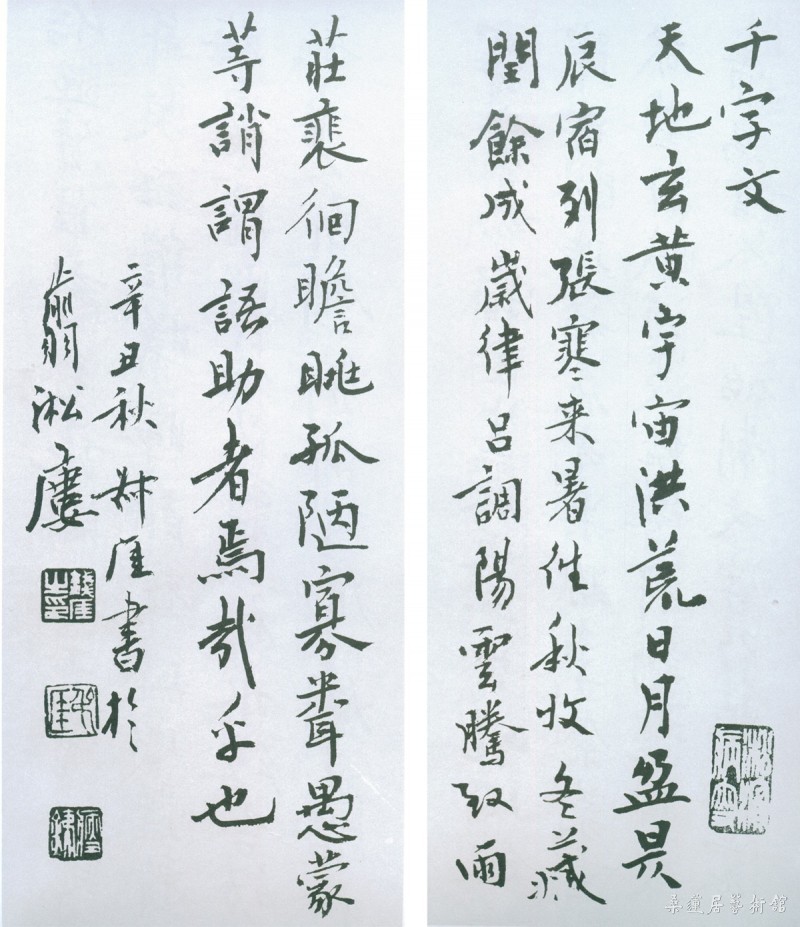 千字文
天地玄黄宇宙洪荒日月盈昃
辰宿列張寒来暑往秋收冬藏
閏餘成歲律呂調陽雲騰致雨
莊裵徊瞻眺孤陋寡䎽愚蒙
等誚謂語助者焉哉乎也
辛丑秋 叔厓書於
翦淞廔
叔厓
瘦鐵
桑蓮居藝術館